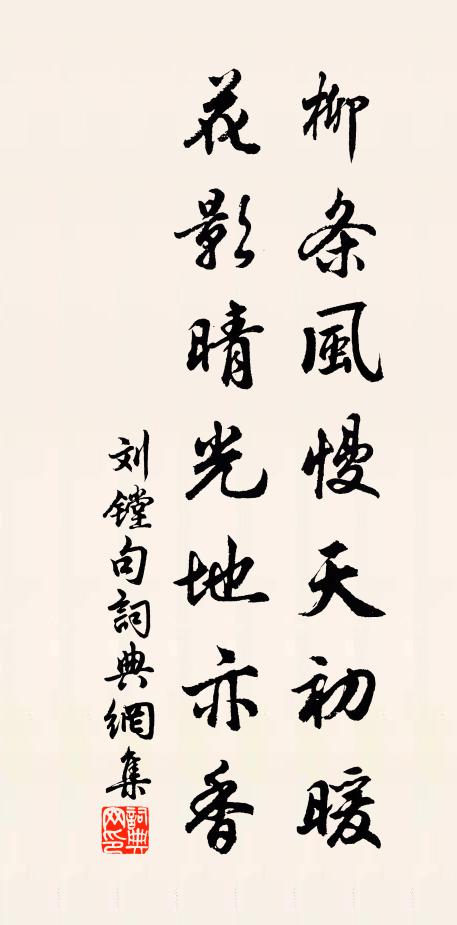 柳条風慢天初暖
花影晴光地亦香
刘镗句詞典網集
詞典網印